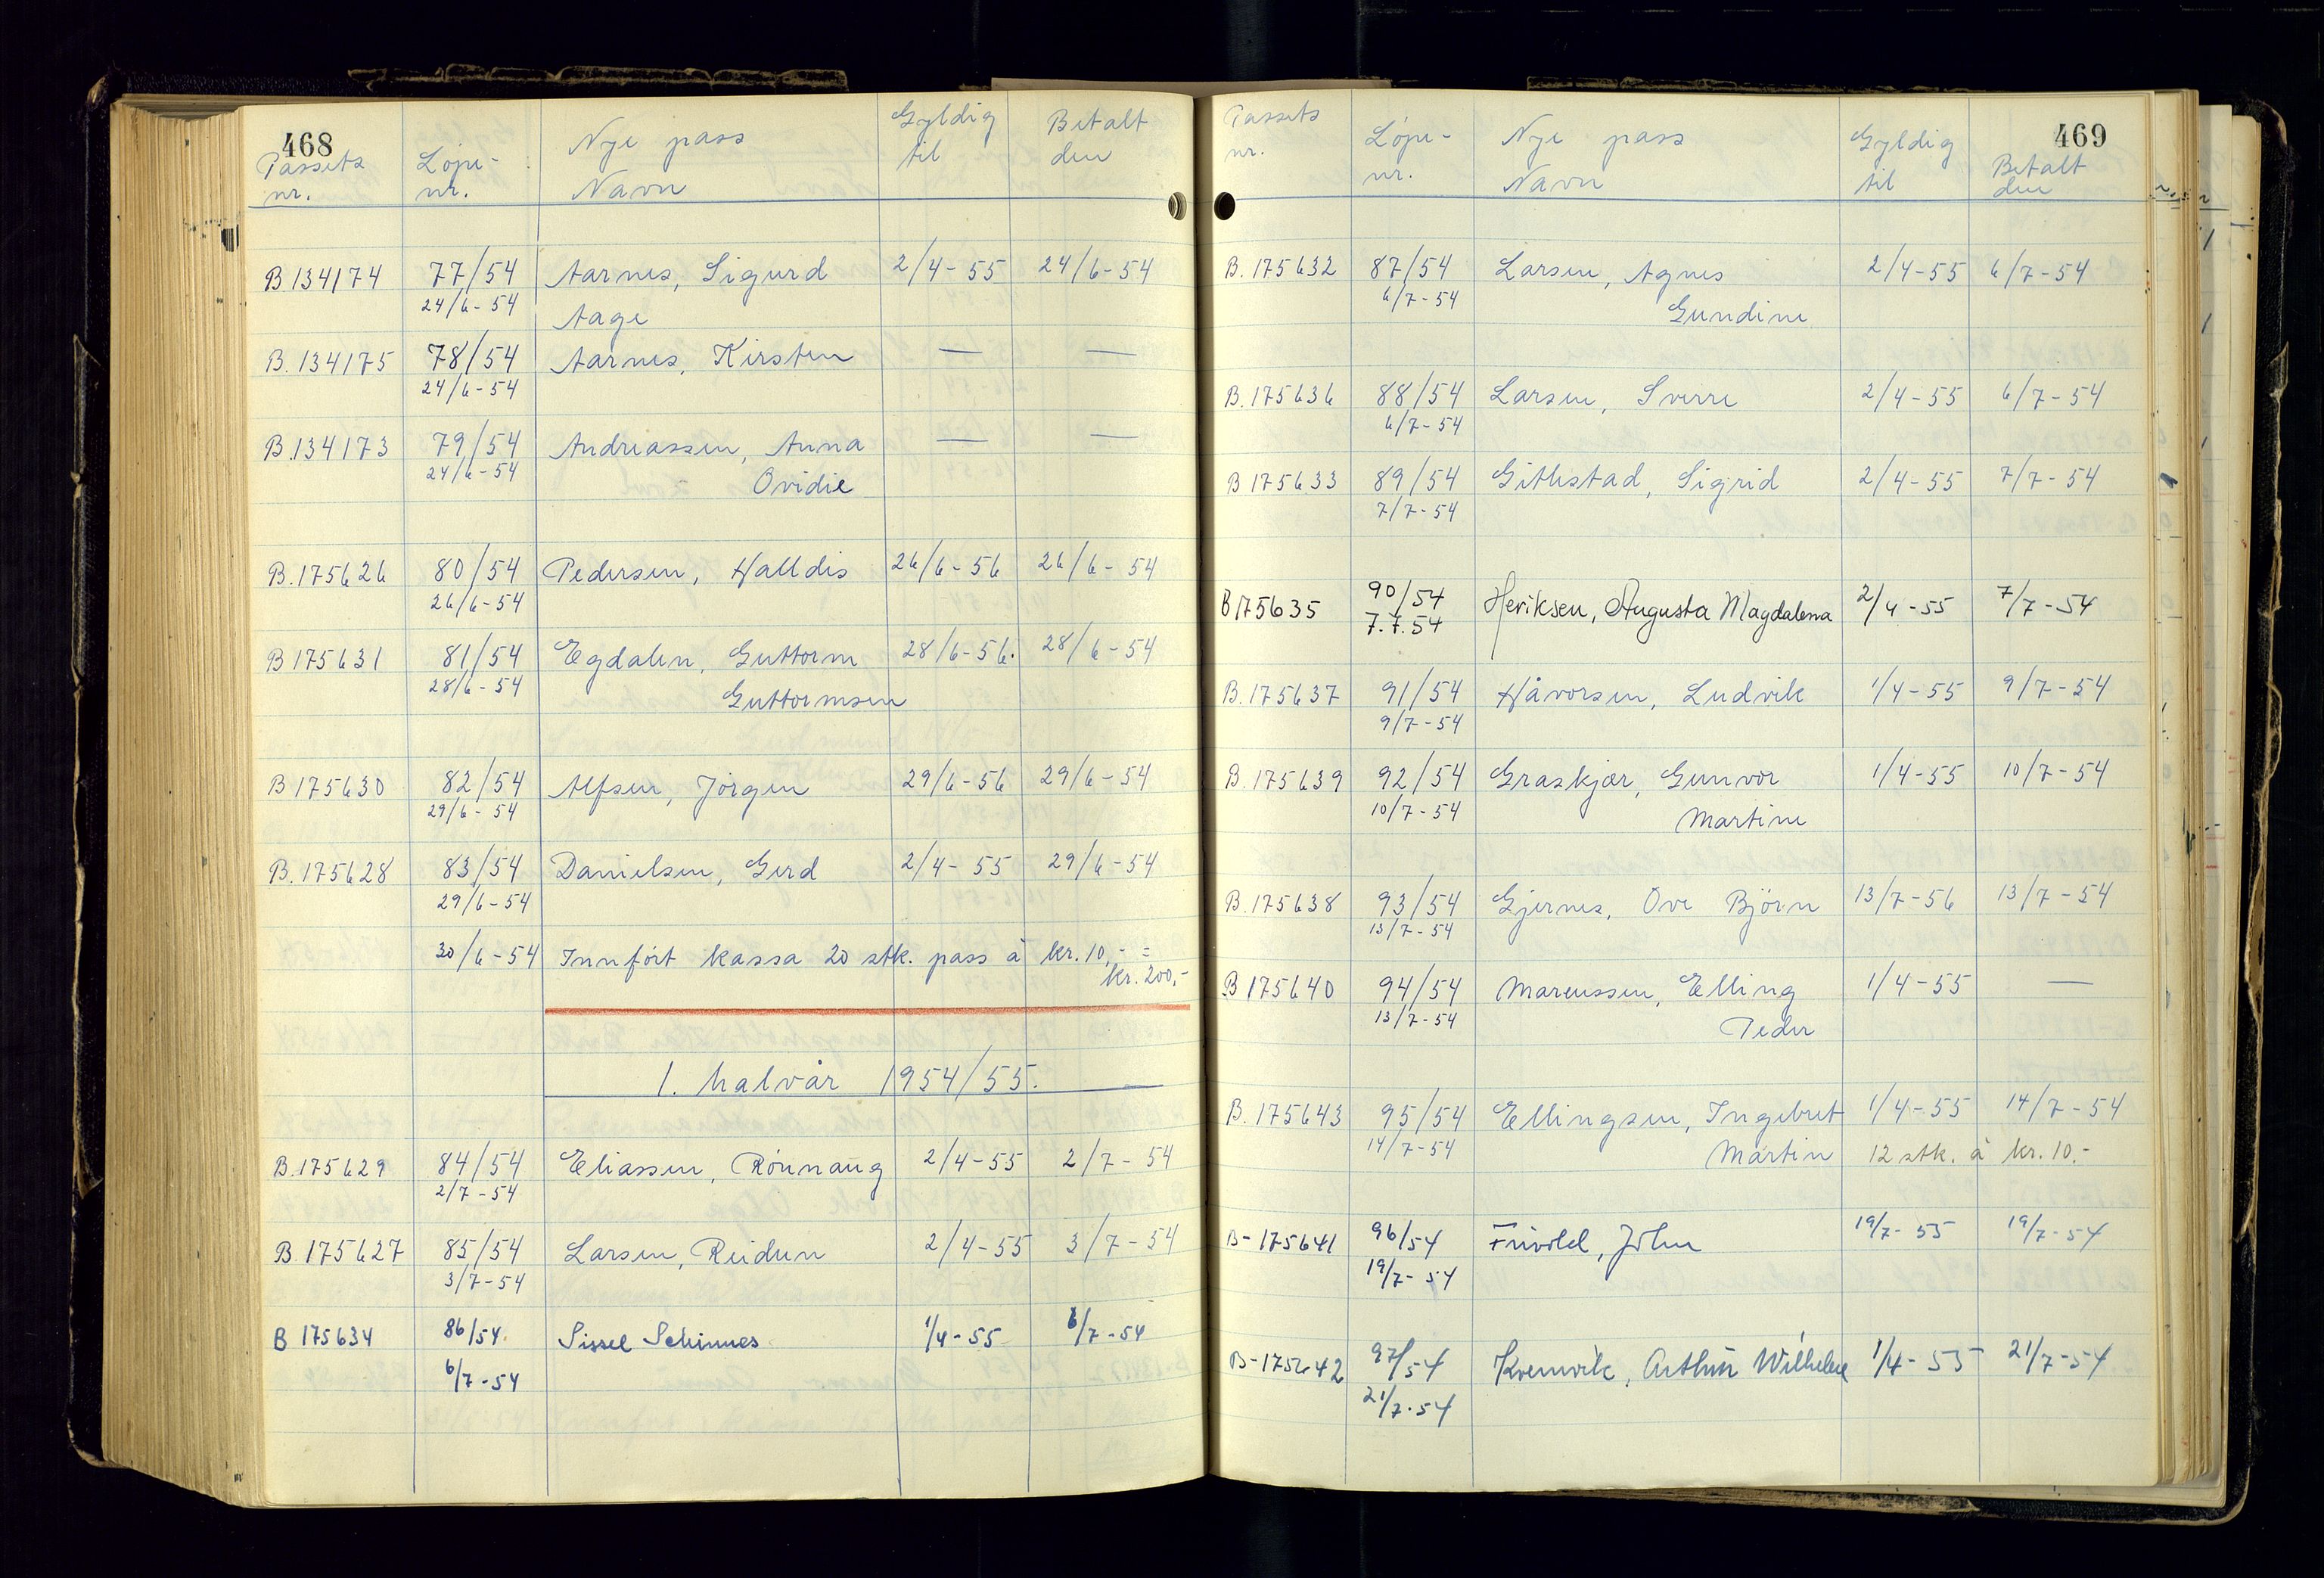 468
Passets nr. Løpe-nr. Nye pass Navn Gyldig til Betalt den
B.134174 77/54 Aarnes, Sigurd 2/4-55 24/6-54
24/6-54 Aage
B.134175 78/54 Aarnes, Kirsten — —
24/6-54
B.134173 79/54 Andreassen, Anna — —
24/6-54 Ovidie
B.175626 80/54 Pedersen, Halldis 26/6-56 26/6-54
26/6-54
B 175631 81/54 Egdalen, Guttorm 28/6-56. 28/6-54
28/6-54 Guttormsen
B 175630 82/54 Alfsen, Jørgen 29/6-56 29/6-54
29/6-54
B.175628 83/54 Danielsen, Gerd 2/4-55 29/6-54
29/6-54
30/6-54 Innført kassa 20 stk. pass à kr. 10,- =
kr. 200,-
1. halvår 1954/55.
B.175629 84/54 Eliassen, Rønnaug 2/4-55 2/7-54
2/7-54
B.175627 85/54 Larsen, Reidun 2/4-55 3/7-54
3/7-54
B 175634 86/54. Sissel 1/4-55 6/7-54
6/7-54
469
Passets nr. Løpe-nr. Nye pass Navn Gyldig til Betalt den
B.175632 87/54 Larsen, Agnes 2/4-55 6/7-54
6/7-54 Gundine
B.175636 88/54 Larsen, Sverre 2/4-55 6/7-54
6/7-54
B 175633 89/54 Githstad, Sigrid 2/4-55 7/7-54
7/7-54
B 175635 90/54 Heriksen, Augusta Magdalena 2/4-55 7/7-54
7.7.54
B.175637 91/54 Håvorsen, Ludvik 1/4-55 9/7-54
9/7-54
B.175639 92/54 Graskjær, Gunvor 1/4-55 10/7-54
10/7-54 Martine
B.175638 93/54 Gjernes, Ove Bjørn 13/7-56 13/7-54
13/7-54
B 175640 94/54 Marcussen, Elling 1/4-55 —
13/7-54 Peder
B.175643 95/54 Ellingsen, Ingebret 1/4-55 14/7-54
14/7-54 Martin 12 stk. à kr. 10.-
B-175641 96/54 John 19/7-55 19/7-54
19/7-54
B-175642 97/54 Kvennvik, Arthur Wilhelm 1/4-55 21/7-54
21/7-54